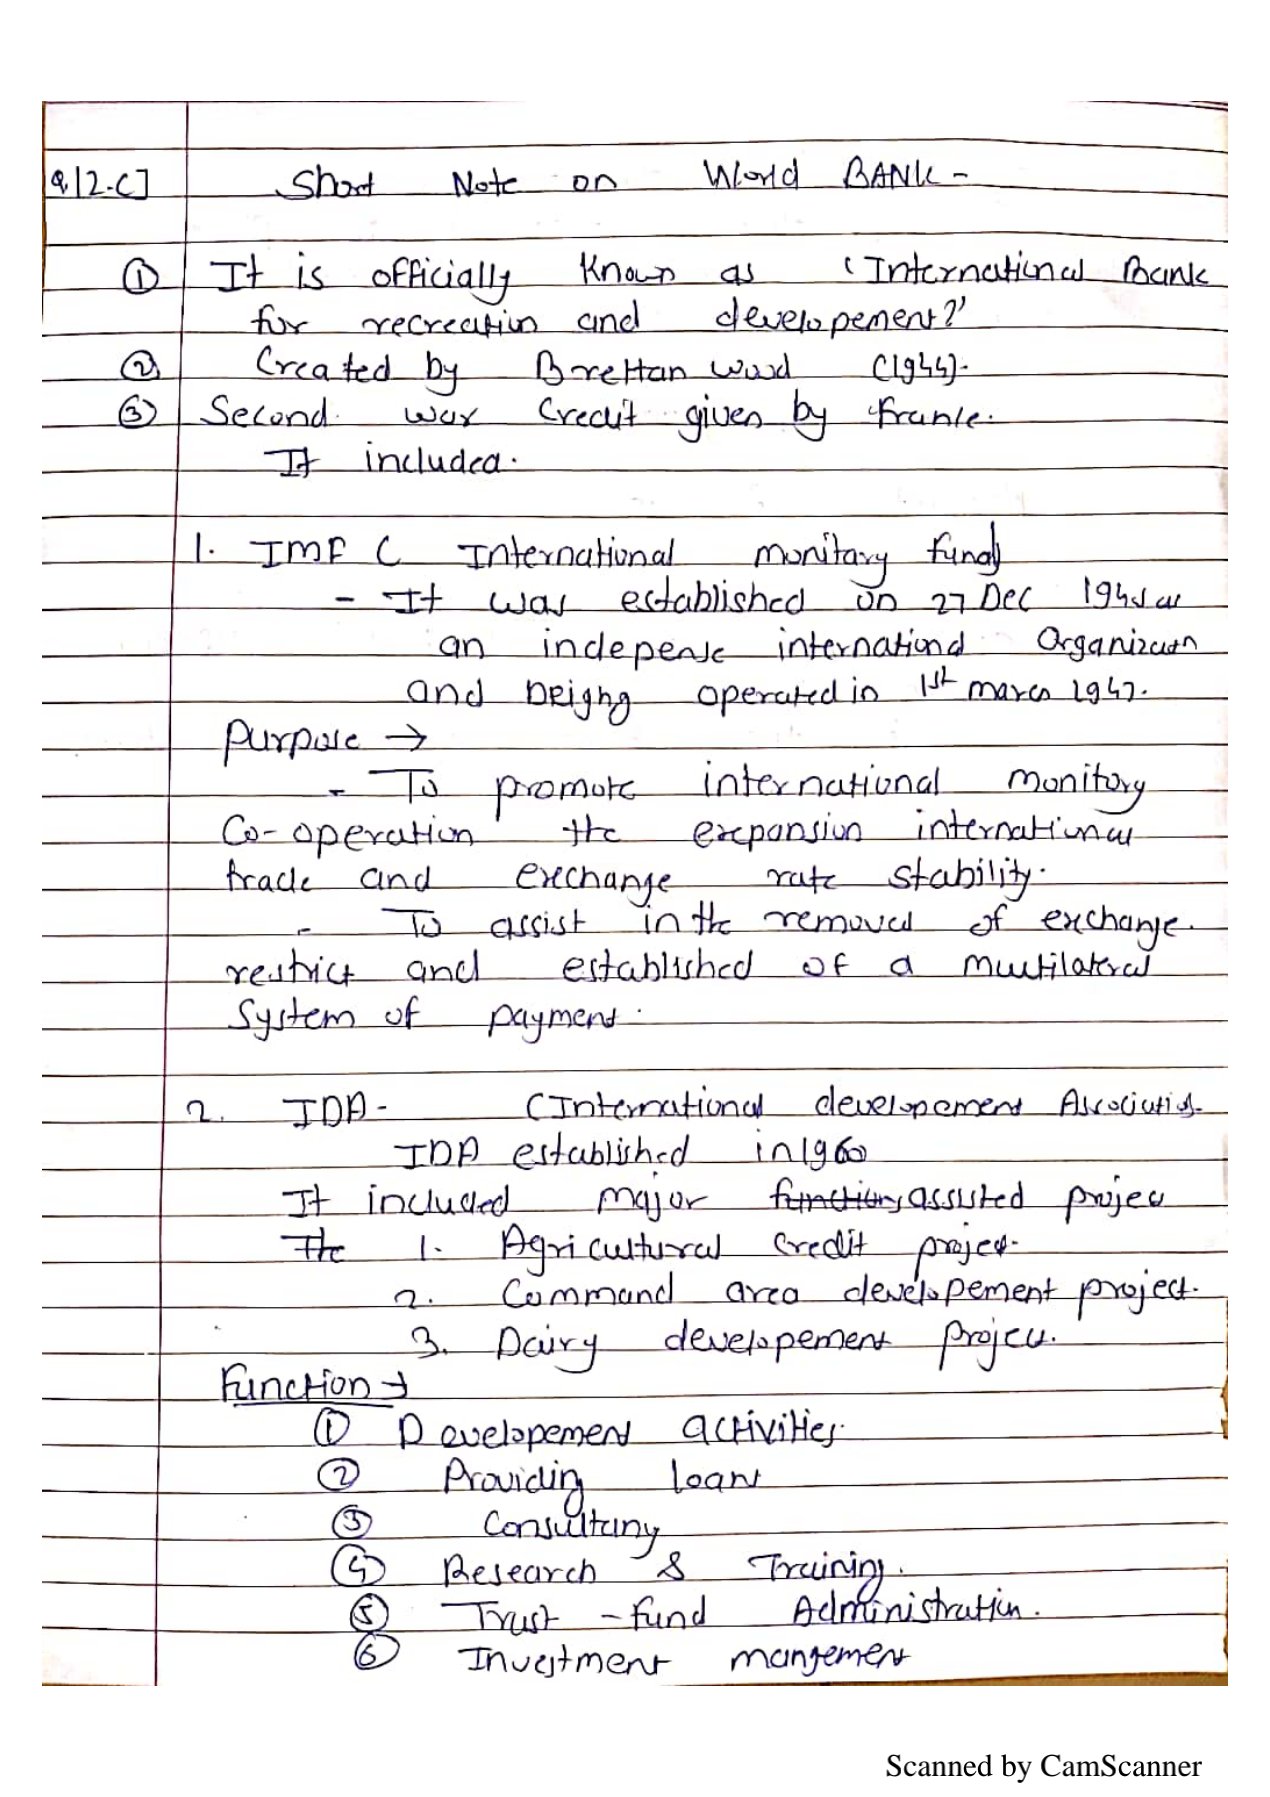 Q.12.C] Short Note on World BANK -
① It is officially Known as (International Bank
for recreation and developement?'
② Created by Brettan wood (1944).
③ Second war Credit given by france.
It included.
1. IMF ( International monitary fund)
- It was established on 27 Dec as
an international Organization
and operated in 1st march 1947.
Purpose →
- To promote international monitory
Co-operation the expansion international
trade and exchange rate stability.
- To assist in the removed of exchange.
restrict and established of a multilateral
System of payment.
2. IDA - (International developement Association
IDA established in 1960
It included major functions assisted project
The 1. Agricultural credit project.
2. Command area developement project.
3. Dairy developement project.
Function →
① Developement activities.
② Providing loans
③ Consultany
④ Research & Training.
⑤ Trust - fund Administration.
⑥ Investment mangement
Scanned by CamScanner